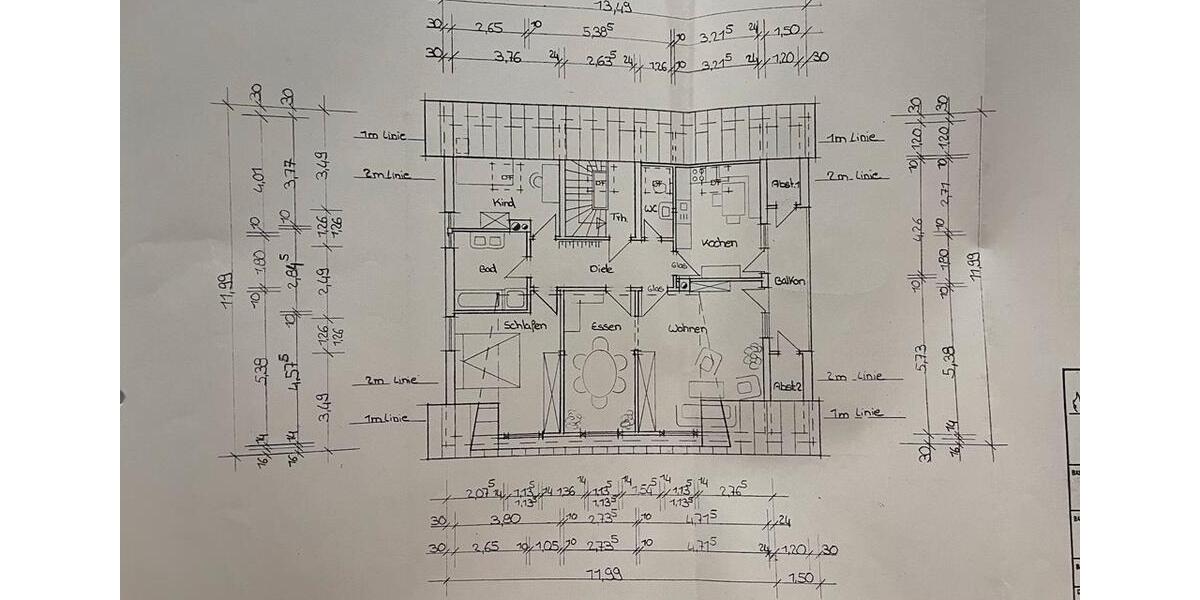 13,49
30 2,65 10 5,38⁵ 10 3,21⁵ 24 1,50
30 3,76 24 2,63⁵ 24 1,26 10 3,21⁵ 24 1,20 30
1m Linie
1m Linie
2m Linie
2m Linie
30 30
30 30
11,99
4,01 10 1,80 10 5,39 14 16
3,77 10 2,84⁵ 10 4,57⁵ 14 16
3,49 1,26 2,49 1,26 3,49
1,26 1,26
DF
DF
DF
DF
Kind
Trh.
WC
Kochen
Abst.1
Bad
Diele
Glas
Glas
Balkon
Schlafen
Essen
Wohnen
Abst.2
2m Linie
2m Linie
1m Linie
1m Linie
1,20 10 4,26 10 5,73 30
1,20 10 2,71 10 1,80 10 5,38 14 16
11,99
2,07⁵ 14 1,13⁵ 14 1,36 14 1,13⁵ 14 1,54⁵ 14 1,13⁵ 14 2,76⁵
1,13⁵ 1,13⁵ 1,13⁵
30 3,90 10 2,73⁵ 10 4,71⁵ 24
30 2,65 10 1,05 10 2,73⁵ 10 4,71⁵ 24 1,20 30
11,99 1,50